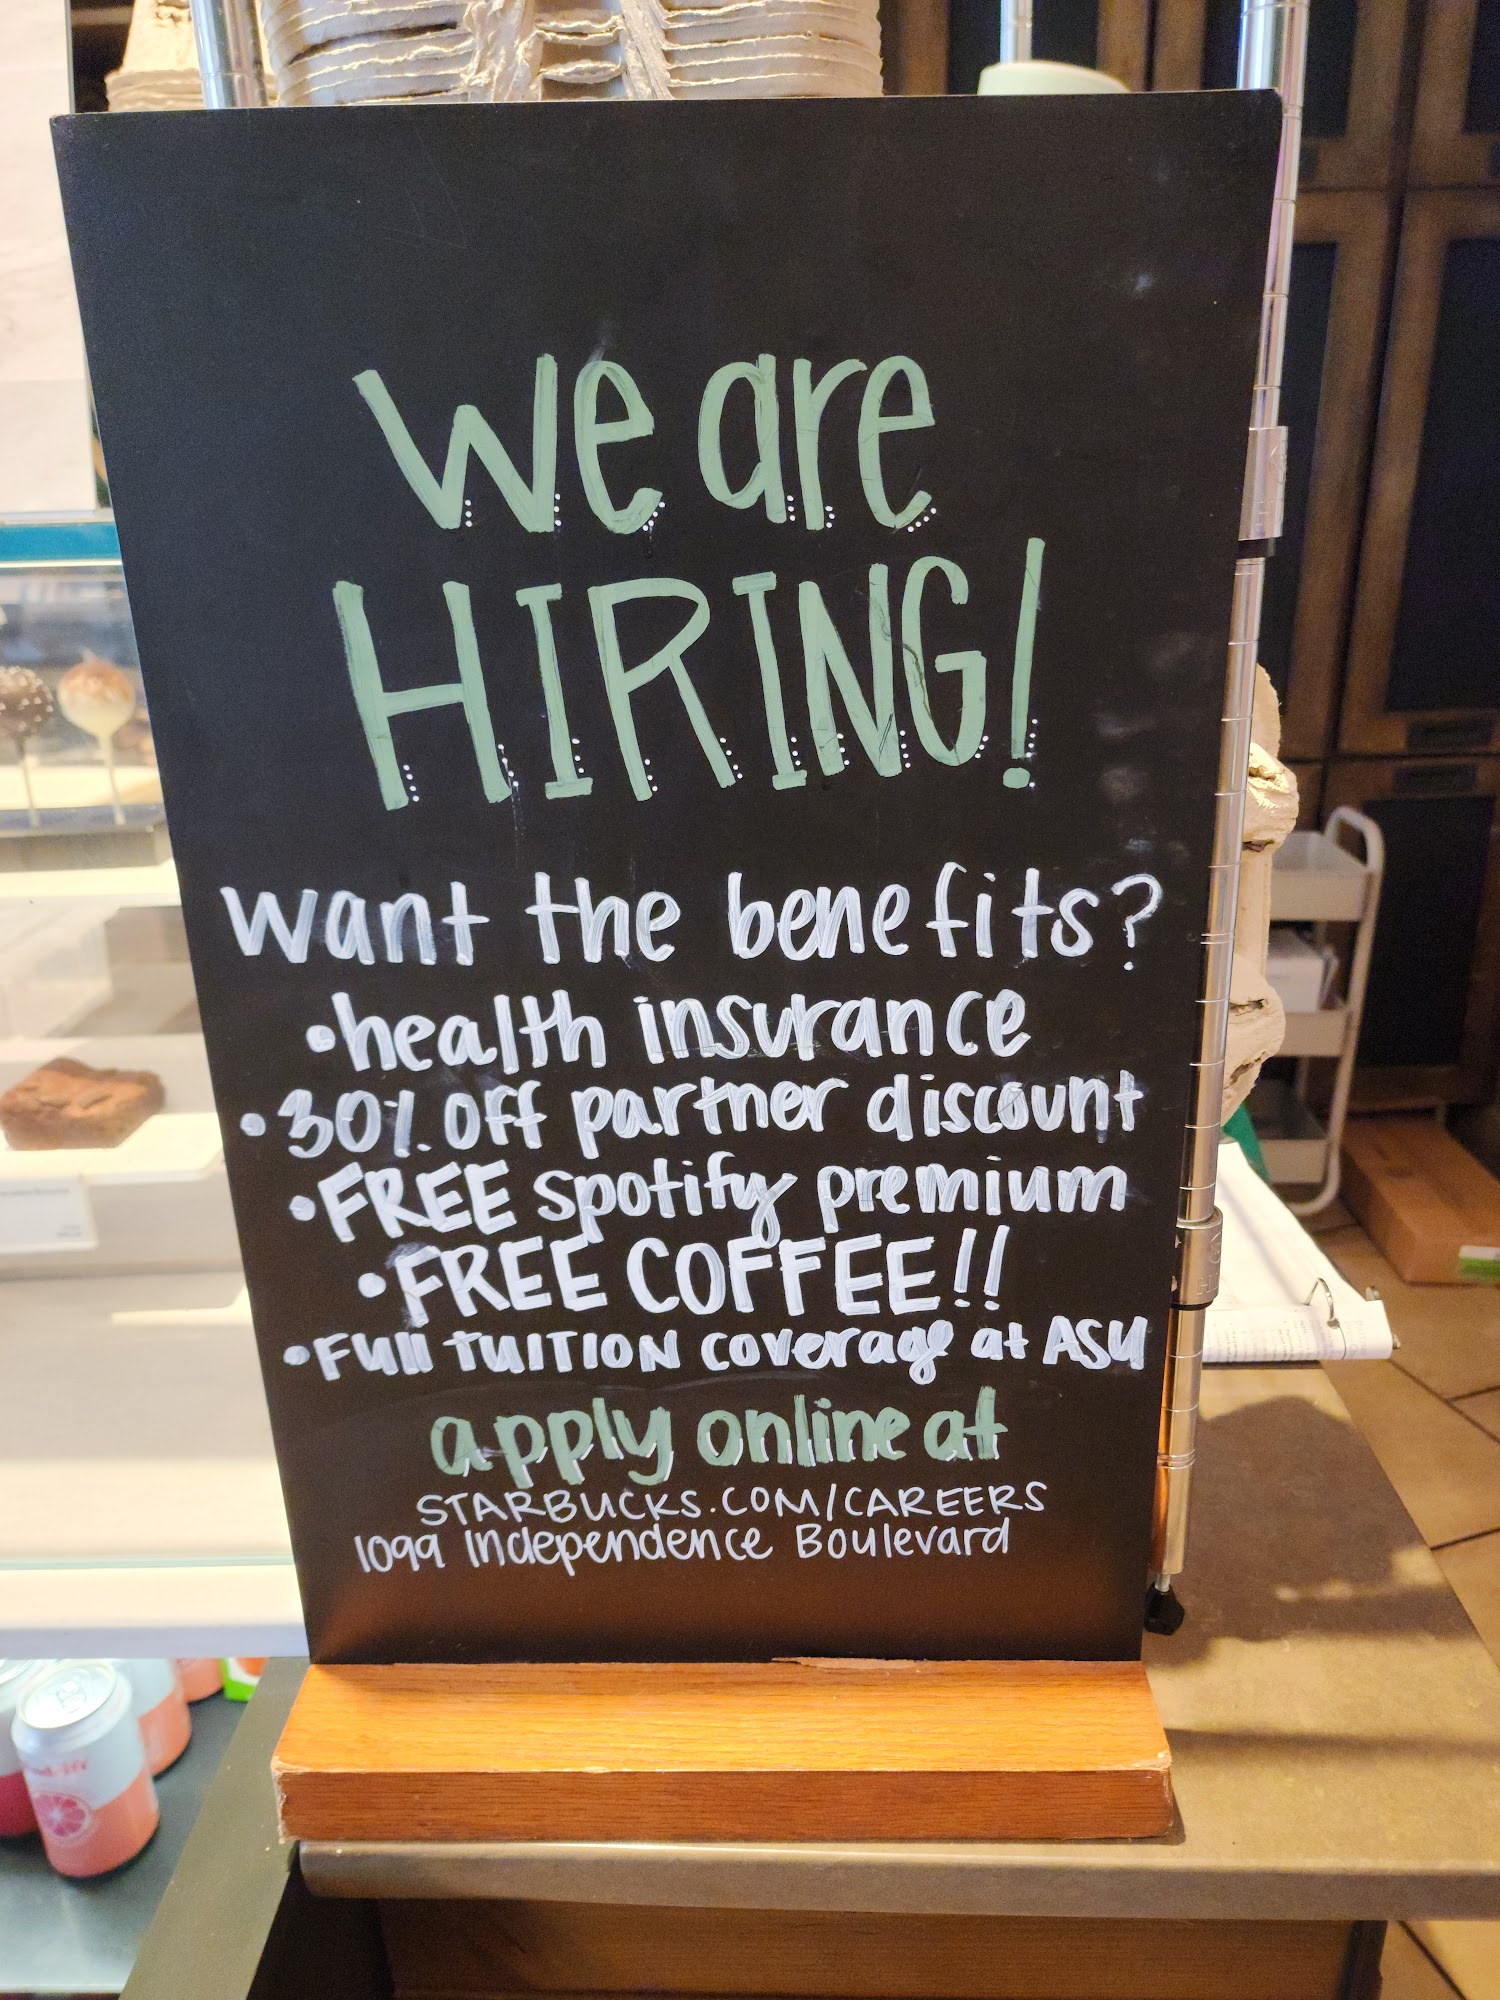 we are
HIRING!
want the benefits?
•health insurance
•30% off partner discount
•FREE spotify premium
•FREE COFFEE!!
•FUll TUITION coverage at ASU
apply online at
STARBUCKS.COM/CAREERS
1099 Independence Boulevard